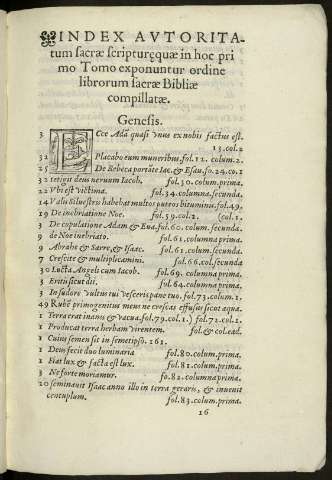 INDEX AVTORITA-
tum sacræ scripturę quæ in hoc pri
mo Tomo exponuntur ordine
librorum sacræ Bibliæ
compillatæ.
Genesis.
3 ECce Adã quasi vnus ex nobis factus est.
13.col.2
32 Placabo eum muneribus.fol.12. colum.2.
25 De Rebęca portate Iac.& Esau.fo.24.co.1
32 tetigit deus neruum Iacob. fol.30.colum.prima.
21 Vbi est victima. fol.34.columna.secunda.
14 Valis Siluestris habebat multos puteos bituminis.fol.49.
19 De inebriatione Noe. fol.59.col.2. (col.1.
3 De copulatione Adam & Eua.fol.60.colum.secunda.
9 de Noe inebriato. fol.61.columna.prima.
9 Abrahe & Sarre,& Isaac. fol.61.colum.prima.
7 Crescite & multiplicamini. fol.66.col.secunda
30 Lucta Angeli cum Iacob. fol.69. columna prima.
3 Eritis sicut dii. fol.64.columna prima.
3 In sudore vultus tui vesceris pane tuo.fol.73.colum.1.
49 Rubẽ primogenitus meus ne crescas effusus sicut aqua.
1 Terra erat inanis & vacua.fol.79.col.1.) fol.72.col.1.
1 Producat terra herbam virentem. fol.& col.ead.
1 Cuius semen sit in semetipso.161.
1 Dem fecit duo luminaria fol.80.colum.prima.
1 Fiat lux & facta est lux. fol.81.colum.prima.
3 Ne forte moriamur. fo.82.columna prima.
20 seminauit Isaac anno illo in terra geraris, & inuenit
centuplum. fol.83.colum.prima.
16